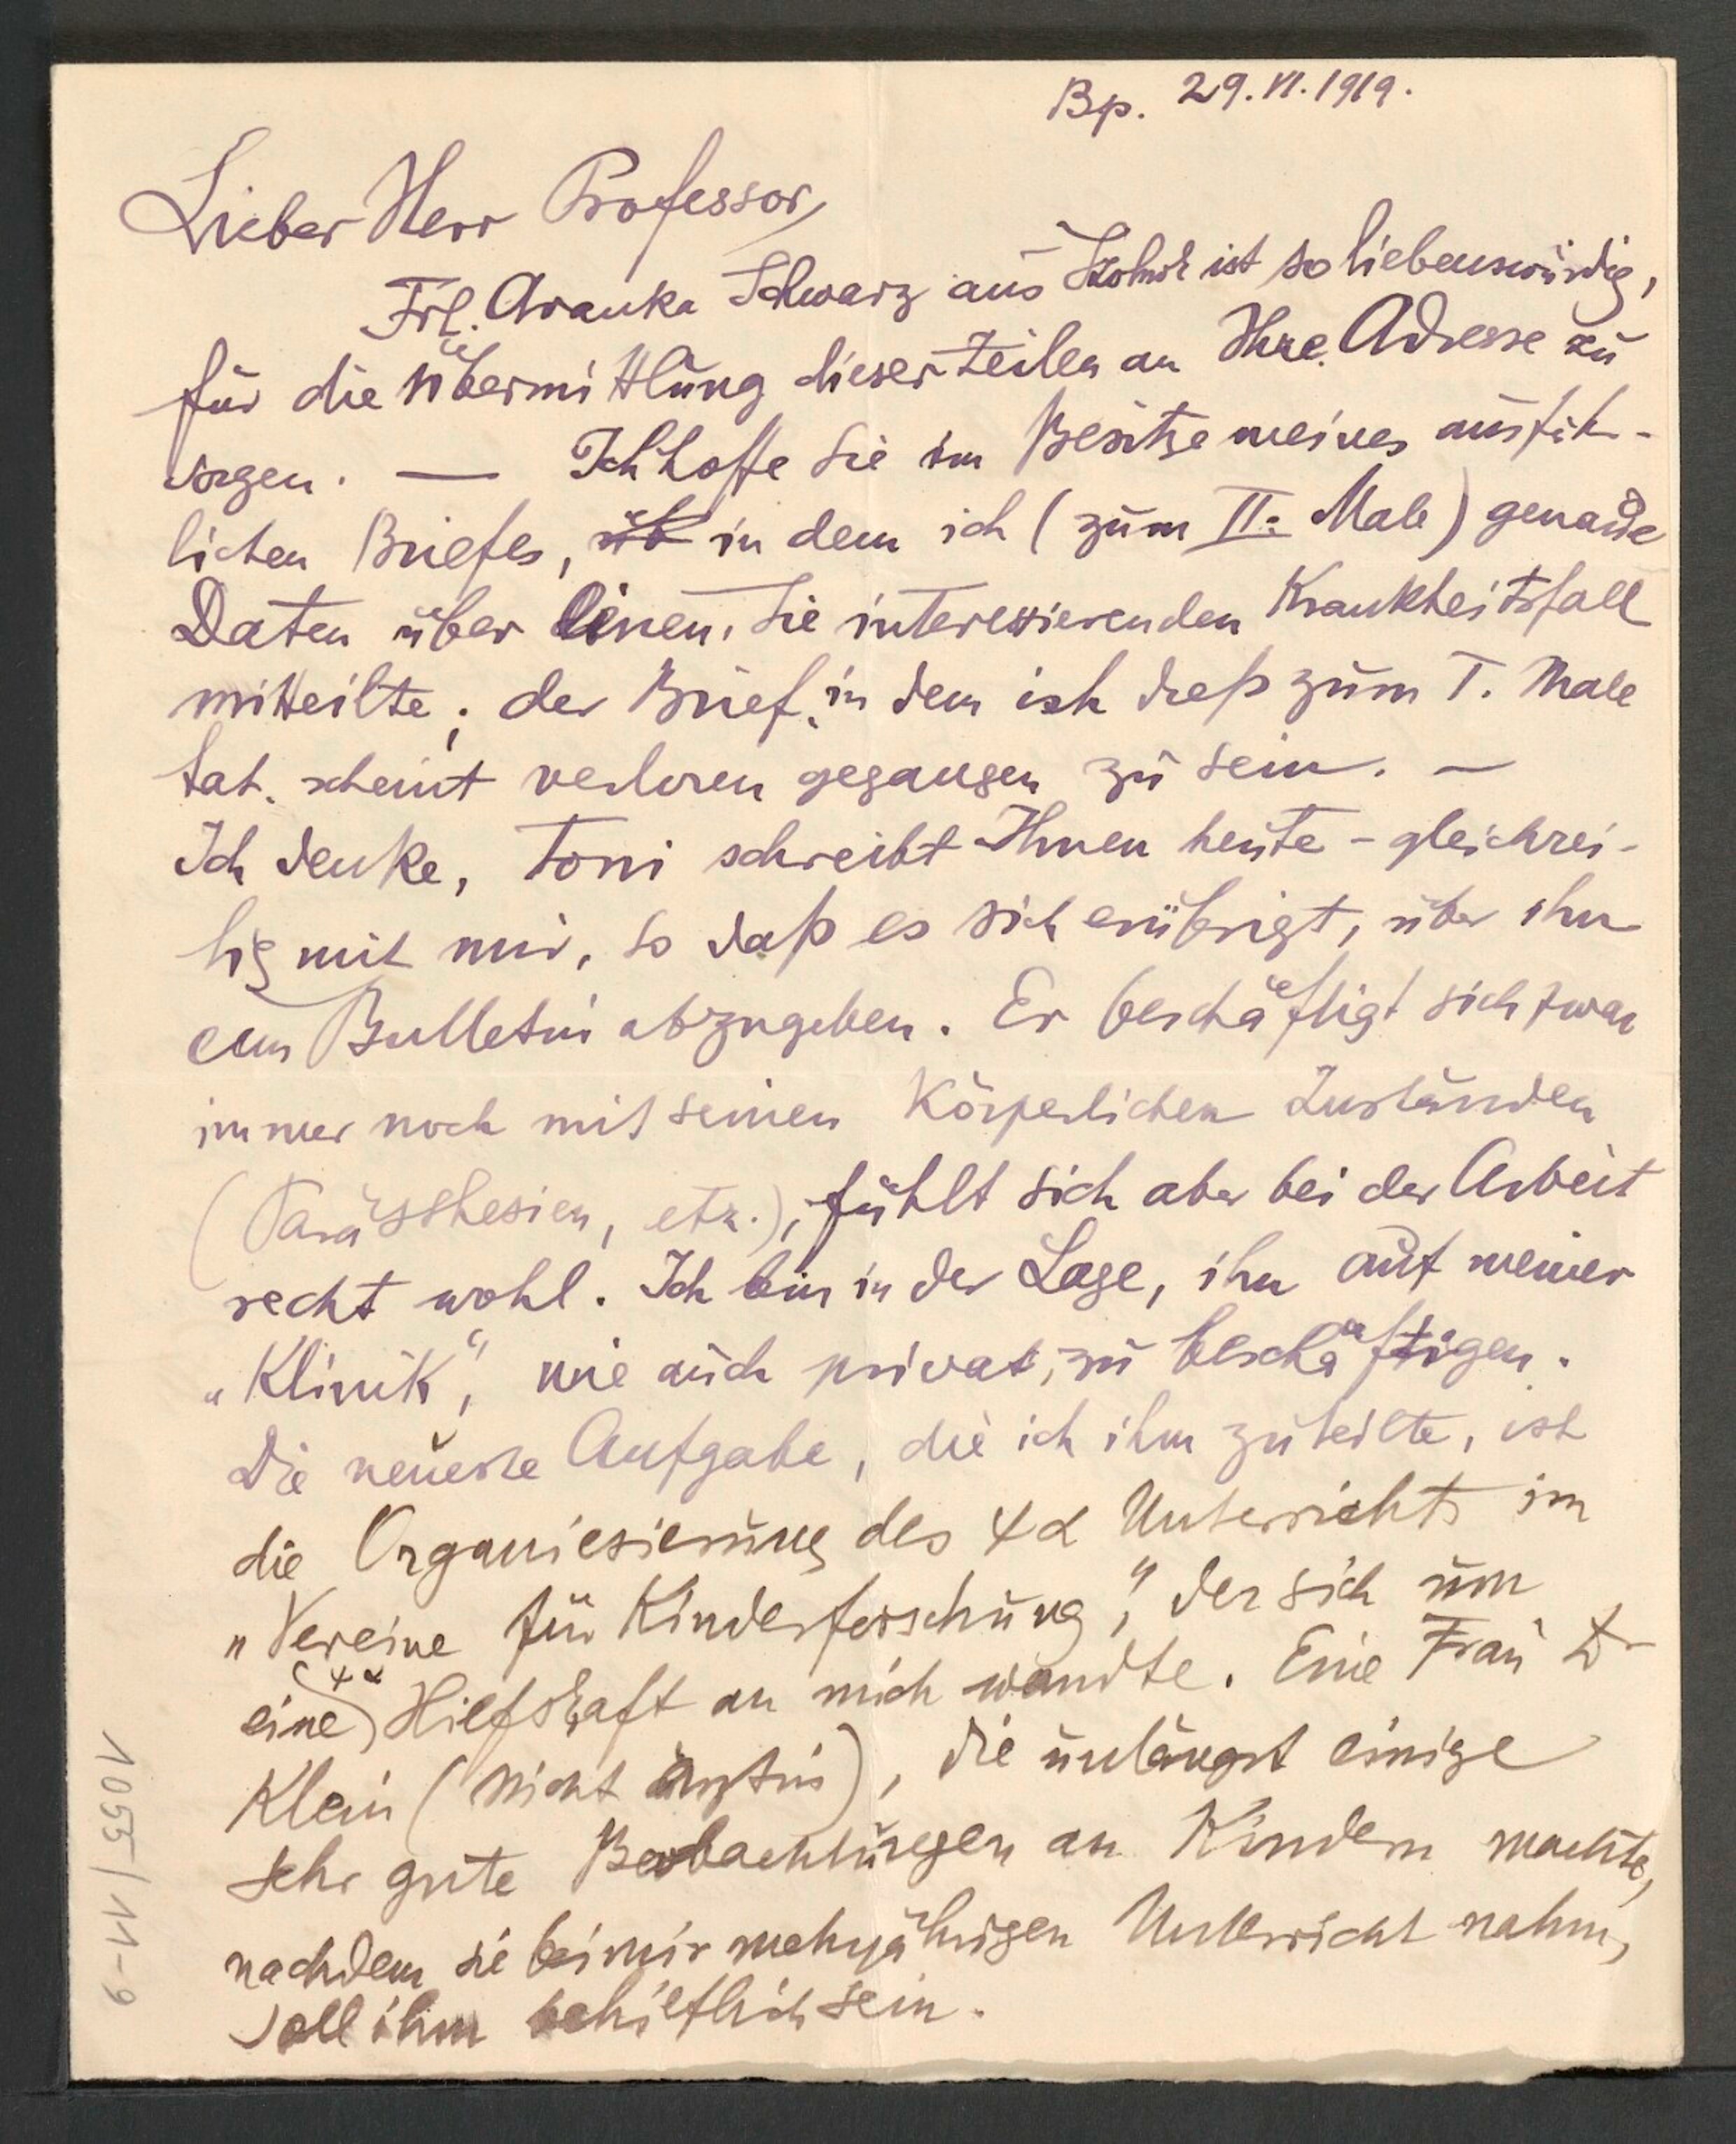 Bp. 29.VI.1919.
Lieber Herr Professor,
Frl. Aranka Schwarz aus Szolnok ist so liebenswürdig,
für die Übermittlung dieser Zeilen an Ihre Adresse zu
sorgen. — Ich hoffe Sie im Besitze meines ausführ-
lichen Briefes, üb in dem ich (zum II. Male) genaue
Daten über einen, Sie interessierenden Krankheitsfall
mitteilte; der Brief, in dem ich dieß zum I. Male
tat, scheint verloren gegangen zu sein. —
Ich denke, Toni schreibt Ihnen heute – gleichzei-
tig mit mir, so daß es sich erübrigt, über ihn
ein Bulletin abzugeben. Er beschäftigt sich zwar
immer noch mit seinen Körperlichen Zuständen
(Parästhesien, etz.), fühlt sich aber bei der Arbeit
recht wohl. Ich bin in der Lage, ihn auf meiner
„Klinik“, wie auch privat, zu beschäftigen.
Die neueste Aufgabe, die ich ihm zuteilte, ist
die Organiesierung des ψα Unterrichts im
„Vereine für Kinderforschung“, der sich um
eine (ψα) Hilfskraft an mich wandte. Eine Frau Dr
Klein (nicht ärztin), die unlängst einige
sehr gute Beobachtungen an Kindern machte,
nachdem sie bei mir mehrjährigen Unterricht nahm,
soll ihm behilflich sein.
1055/11-9